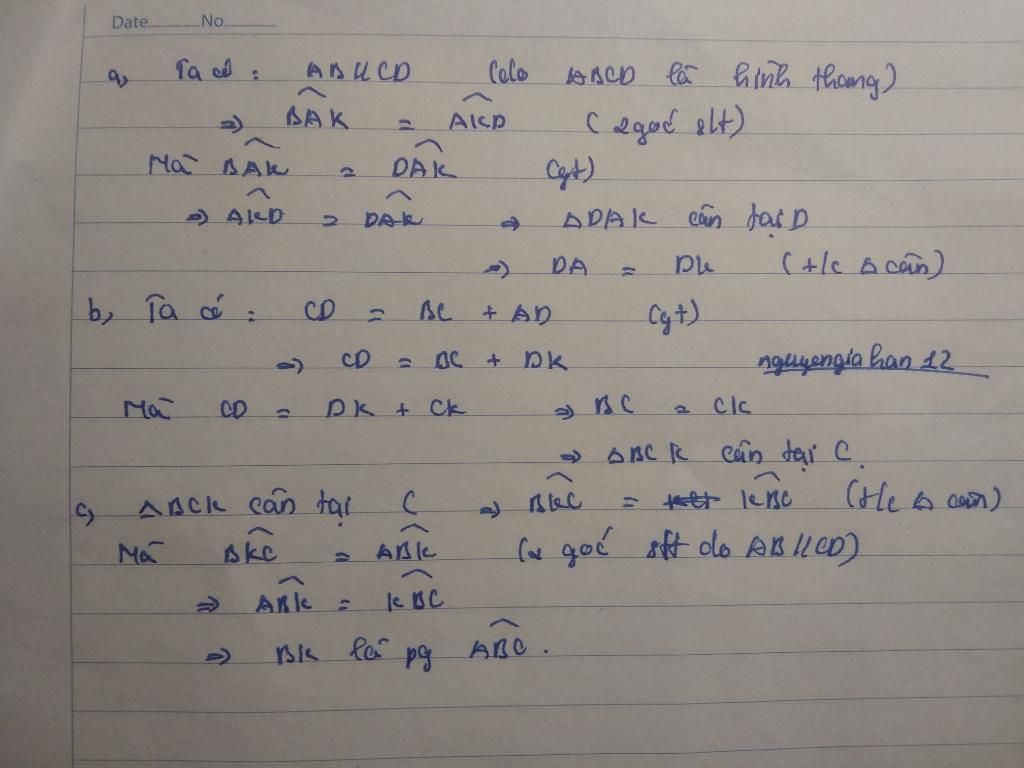 Date.............No..............
a, Ta có : AB//CD (do ABCD là hình thang)
=> BAK = AKD (2 goć slt)
Mà BAK = DAK (gt)
=> AKD = DAK => △DAK cân tại D
=> DA = DK (t/c △ cân)
b, Ta có : CD = BC + AD (gt)
=> CD = BC + DK nguyengiahan 12
Mà CD = DK + CK => BC = CK
=> △BCK cân tại C.
c, △BCK cân tại C => BKC = KBC (t/c △ cân)
Mà BKC = ABK (2 goć slt do AB//CD)
=> ABK = KBC
=> BK là pg ABC.